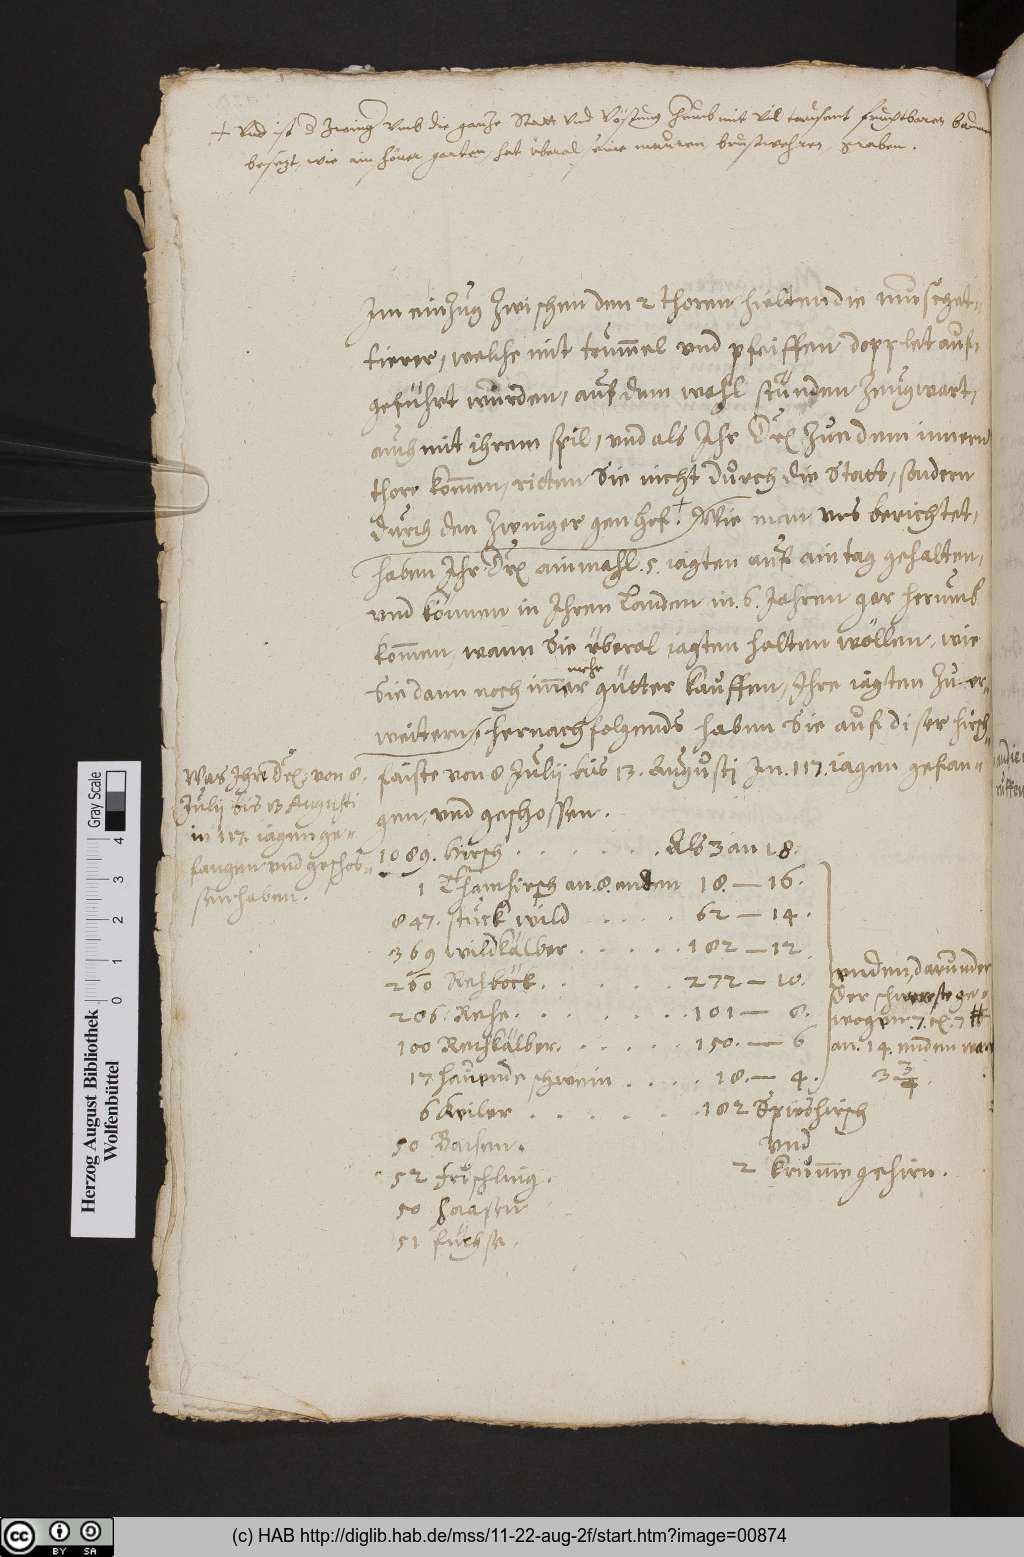 + Und ist d Zwing umb die gantze Statt und Vöstung herumb mit vil tausent fruchtbaren baumen
besezt, wie ein schöner garten, hat überal eine mauren, brustwehren, graben.
Im einzug zwischen den 2 thoren hielten die musqhet-
tierer, welche mit trummel und pfeiffen dopplet auf-
geführt wurden, auf dem wahl stunden Zeugwart,
auch mit ihrem spil, und als Ihr Drl. zue dem innern
thore kommen, ritten Sie nicht durch die Statt, sondern
durch den Zwinger gen hof.+ Wie man uns berichtet,
haben Ihr Drl. ainmahl 5. iagten auf ain tag gehalten,
und können in Ihren Landen in 6. Jahren gar herumb
kommen, wann Sie überal iagten halten wöllen, wie
Sie dann noch immer mehr gütter kauffen, Ihre iagten zu er-
weitern, hernachfolgends haben Sie auf diser hirsch-
faiste von 8 Julij bis 13. Augustj In 117. iagen gefan-
gen, und geschossen.
Was Ihr Drl. von 8.
Julij bis 13 Augusti
in 117. iagen ge-
fangen und geschos-
sen haben.
1089. hirsch . . . . . . . Als 3 an 18.
1 Thamhirsch an 8. enden 18. — 16.
847. stuck wild . . . . . 62 — 14.
369 wildkälber . . . . . 182 — 12.
260 Rehböck . . . . . . 272 — 10.
206. Rehe . . . . . . . 101 — 8.
100 Rehkälber . . . . . . 150. — 6
17 hauende schwein . . . . 18. — 4.
enden, darunder
der schwereste ge-
wogen 7. C. 7 ℔
an 14. enden war
3 3/4.
6 Keiler . . . . . . . 182 Spieshirsch
50 Bachen. und
52 frischling. 2 krumme gehirn.
50 Haasen
51 füchse.
Gray Scale
0 1 2 3 4
Herzog August Bibliothek
Wolfenbüttel
cc BY SA
(c) HAB http://diglib.hab.de/mss/11-22-aug-2f/start.htm?image=00874